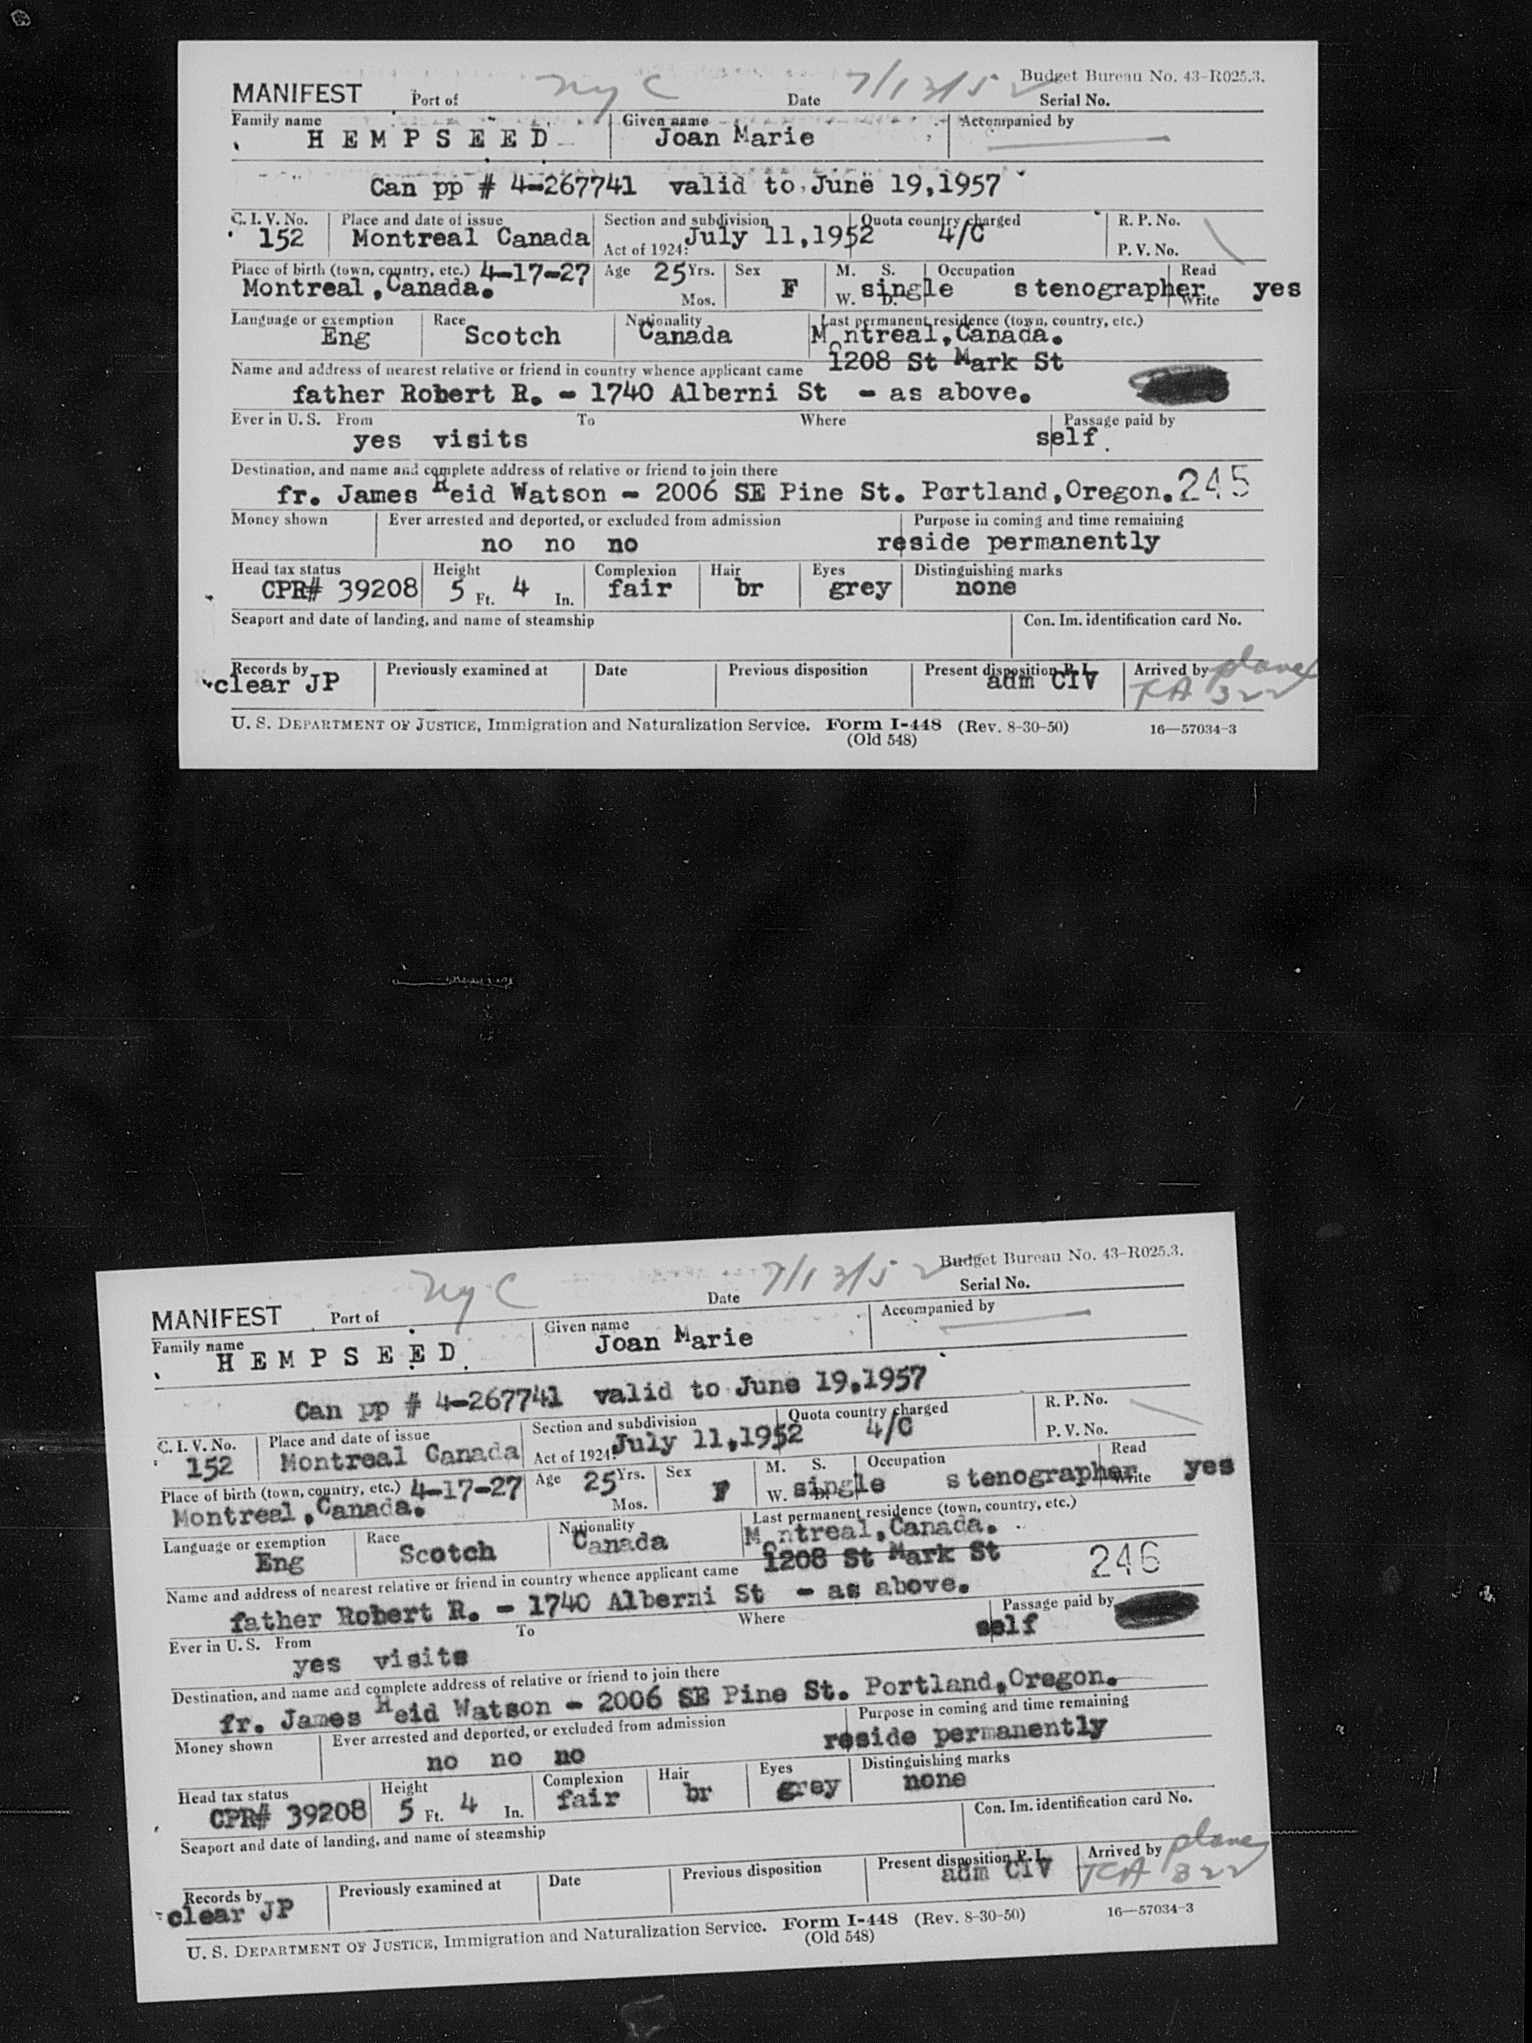 Budget Bureau No. 43-R025.3.
MANIFEST Port of NYC Date 7/13/52 Serial No.
Family name Given name Accompanied by
HEMPSEED Joan Marie
Can pp # 4-267741 valid to June 19,1957
C. I. V. No. Place and date of issue Section and subdivision Quota country charged R. P. No.
152 Montreal Canada Act of 1924: July 11,1952 4/C P. V. No.
Place of birth (town, country, etc.) 4-17-27 Age 25 Yrs. Sex M. S. Occupation Read
Montreal,Canada. Mos. F W. D. single stenographer Write yes
Language or exemption Race Nationality Last permanent residence (town, country, etc.)
Eng Scotch Canada Montreal,Canada.
Name and address of nearest relative or friend in country whence applicant came 1208 St Mark St
father Robert R. - 1740 Alberni St - as above.
Ever in U. S. From To Where Passage paid by
yes visits self
Destination, and name and complete address of relative or friend to join there
fr. James Reid Watson - 2006 SE Pine St. Portland,Oregon. 245
Money shown Ever arrested and deported, or excluded from admission Purpose in coming and time remaining
no no no reside permanently
Head tax status Height Complexion Hair Eyes Distinguishing marks
CPR# 39208 5 Ft. 4 In. fair br grey none
Seaport and date of landing, and name of steamship Con. Im. identification card No.
Records by Previously examined at Date Previous disposition Present disposition P. I. Arrived by plane
clear JP adm CIV TCA 322
U. S. DEPARTMENT OF JUSTICE, Immigration and Naturalization Service. Form I-448 (Rev. 8-30-50) 16—57034-3
(Old 548)
Budget Bureau No. 43-R025.3.
MANIFEST Port of NYC Date 7/13/52 Serial No.
Family name Given name Accompanied by
HEMPSEED Joan Marie
Can pp # 4-267741 valid to June 19,1957
C. I. V. No. Place and date of issue Section and subdivision Quota country charged R. P. No.
152 Montreal Canada Act of 1924: July 11,1952 4/C P. V. No.
Place of birth (town, country, etc.) 4-17-27 Age 25 Yrs. Sex M. S. Occupation Read
Montreal,Canada. Mos. F W. D. single stenographer Write yes
Language or exemption Race Nationality Last permanent residence (town, country, etc.)
Eng Scotch Canada Montreal,Canada.
Name and address of nearest relative or friend in country whence applicant came 1208 St Mark St 246
father Robert R. - 1740 Alberni St - as above.
Ever in U. S. From To Where Passage paid by
yes visits self
Destination, and name and complete address of relative or friend to join there
fr. James Reid Watson - 2006 SE Pine St. Portland,Oregon.
Money shown Ever arrested and deported, or excluded from admission Purpose in coming and time remaining
no no no reside permanently
Head tax status Height Complexion Hair Eyes Distinguishing marks
CPR# 39208 5 Ft. 4 In. fair br grey none
Seaport and date of landing, and name of steamship Con. Im. identification card No.
Records by Previously examined at Date Previous disposition Present disposition P. I. Arrived by plane
clear JP adm CIV TCA 322
U. S. DEPARTMENT OF JUSTICE, Immigration and Naturalization Service. Form I-448 (Rev. 8-30-50) 16—57034-3
(Old 548)